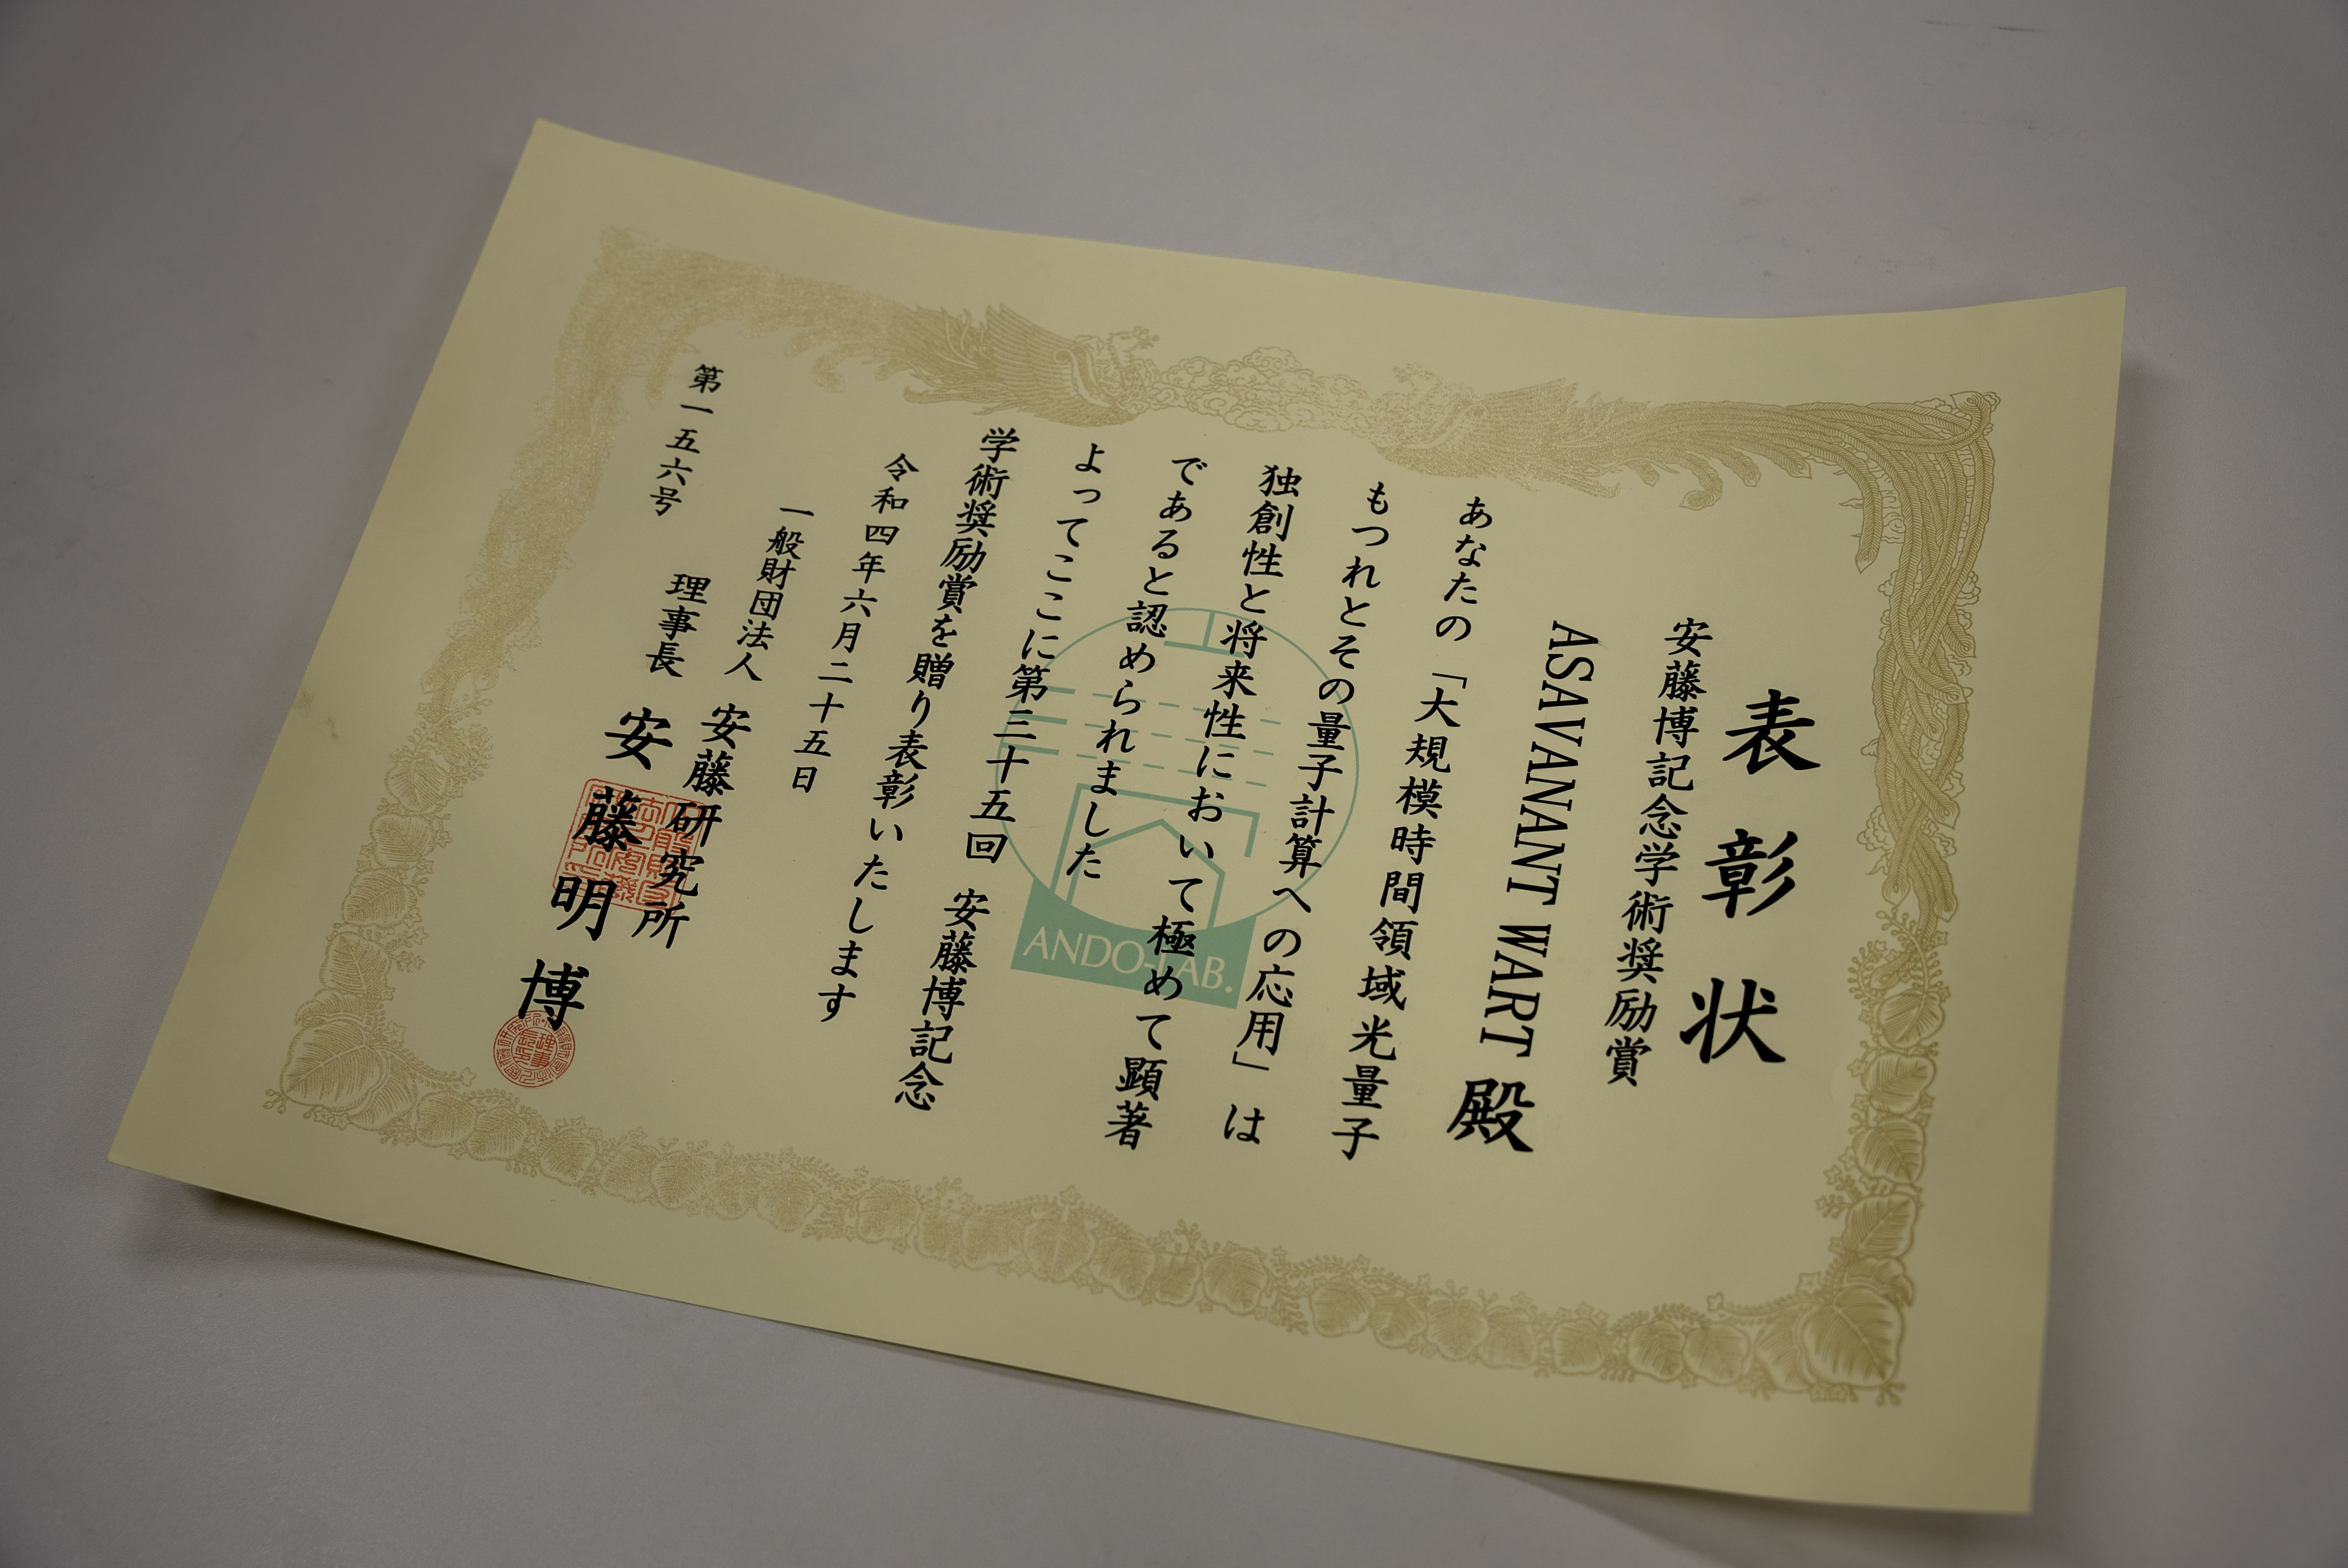 表彰状
安藤博記念学術奨励賞
ASAVANANT WART 殿
あなたの「大規模時間領域光量子
もつれとその量子計算への応用」は
独創性と将来性において極めて顕著
であると認められました
よってここに第三十五回 安藤博記念
学術奨励賞を贈り表彰いたします
令和四年六月二十五日
一般財団法人 安藤研究所
理事長 安藤明博
第一五六号
ANDO-LAB.